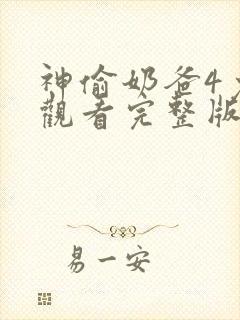 神偷奶爸4
觀看完整版
易一安